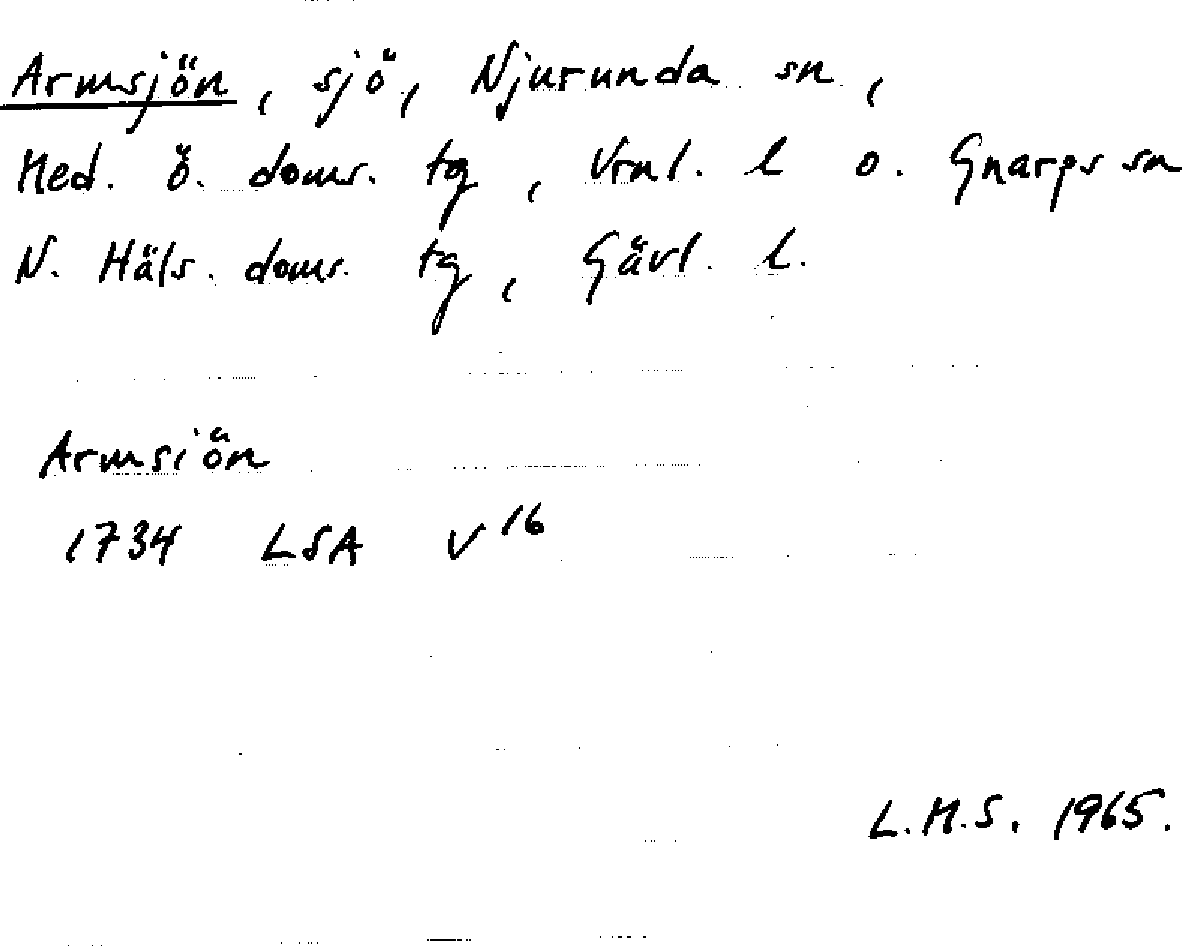 Armsjön, sjö, Njurunda sn,
Med. ö. doms. tg, Vrnl. l o. Gnarps sn
N. Häls. doms. tg, Gävl. l.
Armsiön
1734 LSA V 16
L.H.S. 1965.